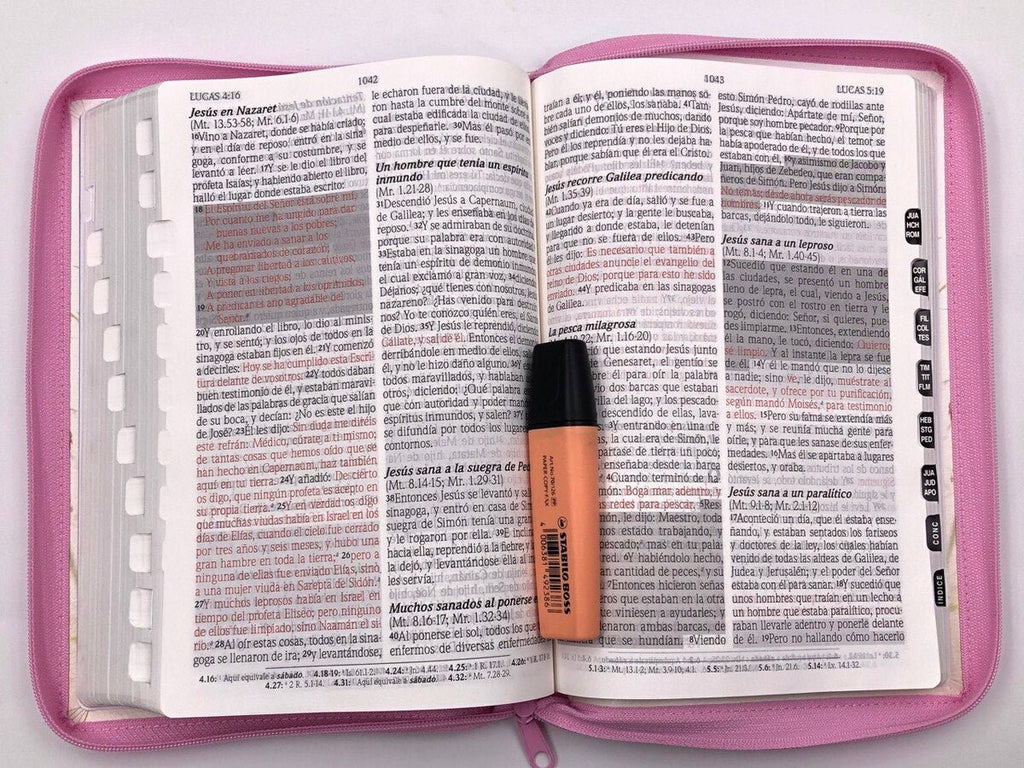 1042
LUCAS 4:16
Jesús en Nazaret
(Mt. 13.53-58; Mr. 6.1-6)
16Vino a Nazaret, donde se había criado;
y en el día de reposo* entró en la sina-
goga, conforme a su costumbre, y se
levantó a leer. 17Y se le dio el libro del
profeta Isaías; y habiendo abierto el libro,
halló el lugar donde estaba escrito:
18 El Espíritu del Señor está sobre mí,
Por cuanto me ha ungido para dar
buenas nuevas a los pobres;
Me ha enviado a sanar a los
quebrantados de corazón;
A pregonar libertad a los cautivos,
Y vista a los ciegos;
A poner en libertad a los oprimidos;
19 A predicar el año agradable del
Señor.
20Y enrollando el libro, lo dio al minis
tro, y se sentó; y los ojos de todos en la
sinagoga estaban fijos en él. 21Y comenzó
a decirles: Hoy se ha cumplido esta Escri
tura delante de vosotros. 22Y todos daban
buen testimonio de él, y estaban maravi-
llados de las palabras de gracia que salían
de su boca, y decían: ¿No es este el hijo
de José? 23Él les dijo: Sin duda me diréis
este refrán: Médico, cúrate a ti mismo;
de tantas cosas que hemos oído que se
han hecho en Capernaum, haz también
aquí en tu tierra. 24Y añadió: De cierto
os digo, que ningún profeta es acepto en
su propia tierra. 25Y en verdad os digo
que muchas viudas había en Israel en los
días de Elías, cuando el cielo fue cerrado
por tres años y seis meses, y hubo una
gran hambre en toda la tierra; 26pero a
ninguna de ellas fue enviado Elías, sino
a una mujer viuda en Sarepta de Sidón.
27Y muchos leprosos había en Israel en
tiempo del profeta Eliseo; pero ninguno
de ellos fue limpiado, sino Naamán el si-
rio. 28Al oír estas cosas, todos en la sina-
goga se llenaron de ira; 29y levantándose,
le echaron fuera de la ciudad, y le
ron hasta la cumbre del monte sobre
cual estaba edificada la ciudad de
para despeñarle. 30Mas él pasó por
medio de ellos, y se fue.
Un hombre que tenía un espíritu
inmundo
(Mr. 1.21-28)
31Descendió Jesús a Capernaum, ciudad
de Galilea; y les enseñaba en los días
reposo. 32Y se admiraban de su doctrina,
porque su palabra era con autoridad.
33Estaba en la sinagoga un hombre
tenía un espíritu de demonio inmundo,
el cual exclamó a gran voz, 34diciendo:
Déjanos; ¿qué tienes con nosotros,
nazareno? ¿Has venido para destruir
nos? Yo te conozco quién eres, el Santo
de Dios. 35Y Jesús le reprendió, diciendo:
Cállate, y sal de él. Entonces
derribándole en medio de ellos, salió
él, y no le hizo daño alguno.
todos maravillados, y hablaban
decían: ¿Qué palabra
que con autoridad y poder manda
espíritus inmundos, y salen? 37Y
se difundía por todos los lugares
contornos.
Jesús sana a la suegra de Ped
(Mt. 8.14-15; Mr. 1.29-31)
38Entonces Jesús se levantó y salió
sinagoga, y entró en casa de Simón
suegra de Simón tenía una gran
y le rogaron por ella. 39E inclin
hacia ella, reprendió a la fiebre; y
la dejó, y levantándose ella al
les servía.
Muchos sanados al ponerse e
(Mt. 8.16-17; Mr. 1.32-34)
40Al ponerse el sol, todos los que
enfermos de diversas enfermedades
4.16: Aquí equivale a sábado. 4.18-19: Is. 61.1-2. 4.24: Jn. 4.44. 4.25: 1 R. 17.1. 4.26:
4.27: 2 R. 5.1-14. 4.31: Aquí equivale a sábado. 4.32: Mt. 7.28-29.
1043
LUCAS 5:19
traían a él; y él, poniendo las manos so-
bre cada uno de ellos, los sanaba. 41Tam
bién salían demonios de muchos, dando
voces y diciendo: Tú eres el Hijo de Dios.
Pero él los reprendía y no les dejaba ha-
blar, porque sabían que él era el Cristo.
Jesús recorre Galilea predicando
(Mr. 1.35-39)
42Cuando ya era de día, salió y se fue a
un lugar desierto; y la gente le buscaba,
y llegando a donde estaba, le detenían
para que no se fuera de ellos. 43Pero
él les dijo: Es necesario que también a
otras ciudades anuncie el evangelio del
reino de Dios; porque para esto he sido
enviado. 44Y predicaba en las sinagogas
de Galilea.
La pesca milagrosa
Mr. 1.16-20)
que estando Jesús junto
de Genesaret, el gentío se
para oír la palabra
vio dos barcas que estaban
lla del lago; y los pescado-
descendido de ellas, lava-
3Y entrando en una de
la cual era de Simón, le
apartase de tierra un poco;
enseñaba desde la barca
4Cuando terminó de ha-
Simón: Boga mar adentro, y
redes para pescar. 5Res
Simón, le dijo: Maestro, toda
estado trabajando, y
pescado; mas en tu pala
red. 6Y habiéndolo hecho,
cantidad de peces, y su
7Entonces hicieron señas
que estaban en la otra
viniesen a ayudarles; y
ambas barcas, de
que se hundían. 8Viendo
esto Simón Pedro, cayó de rodillas ante
Jesús, diciendo: Apártate de mí, Señor,
porque soy hombre pecador. 9Porque por
la pesca que habían hecho, el temor se
había apoderado de él, y de todos los que
estaban con él, 10y asimismo de Jacobo y
Juan, hijos de Zebedeo, que eran compa-
ñeros de Simón. Pero Jesús dijo a Simón:
No temas; desde ahora serás pescador de
hombres. 11Y cuando trajeron a tierra las
barcas, dejándolo todo, le siguieron.
Jesús sana a un leproso
(Mt. 8.1-4; Mr. 1.40-45)
12Sucedió que estando él en una de
las ciudades, se presentó un hombre
lleno de lepra, el cual, viendo a Jesús,
se postró con el rostro en tierra y le
rogó, diciendo: Señor, si quieres, pue-
des limpiarme. 13Entonces, extendiendo
él la mano, le tocó, diciendo: Quiero;
sé limpio. Y al instante la lepra se fue
de él. 14Y él le mandó que no lo dijese
a nadie; sino ve, le dijo, muéstrate al
sacerdote, y ofrece por tu purificación,
según mandó Moisés, para testimonio
a ellos. 15Pero su fama se extendía más y
más; y se reunía mucha gente para
oírle, y para que les sanase de sus enfer-
medades. 16Mas él se apartaba a lugares
desiertos, y oraba.
Jesús sana a un paralítico
(Mt. 9.1-8; Mr. 2.1-12)
17Aconteció un día, que él estaba ense-
ñando, y estaban sentados los fariseos
y doctores de la ley, los cuales habían
venido de todas las aldeas de Galilea, de
Judea y Jerusalén; y el poder del Señor
estaba con él para sanar. 18Y sucedió que
unos hombres que traían en un lecho a
un hombre que estaba paralítico, procu-
raban llevarle adentro y ponerle delante
de él. 19Pero no hallando cómo hacerlo
5.1-3: Mt. 13.1-2; Mr. 3.9-10; 4.1. 5.5: Jn. 21.3. 5.6: Jn. 21.6. 5.14: Lv. 14.1-32.
JUA
HCH
ROM
COR
GÁL
EFE
FIL
COL
TES
TIM
TIT
FLM
HEB
STG
PED
JUA
JUD
APO
CONC
ÍNDICE
STABILO BOSS